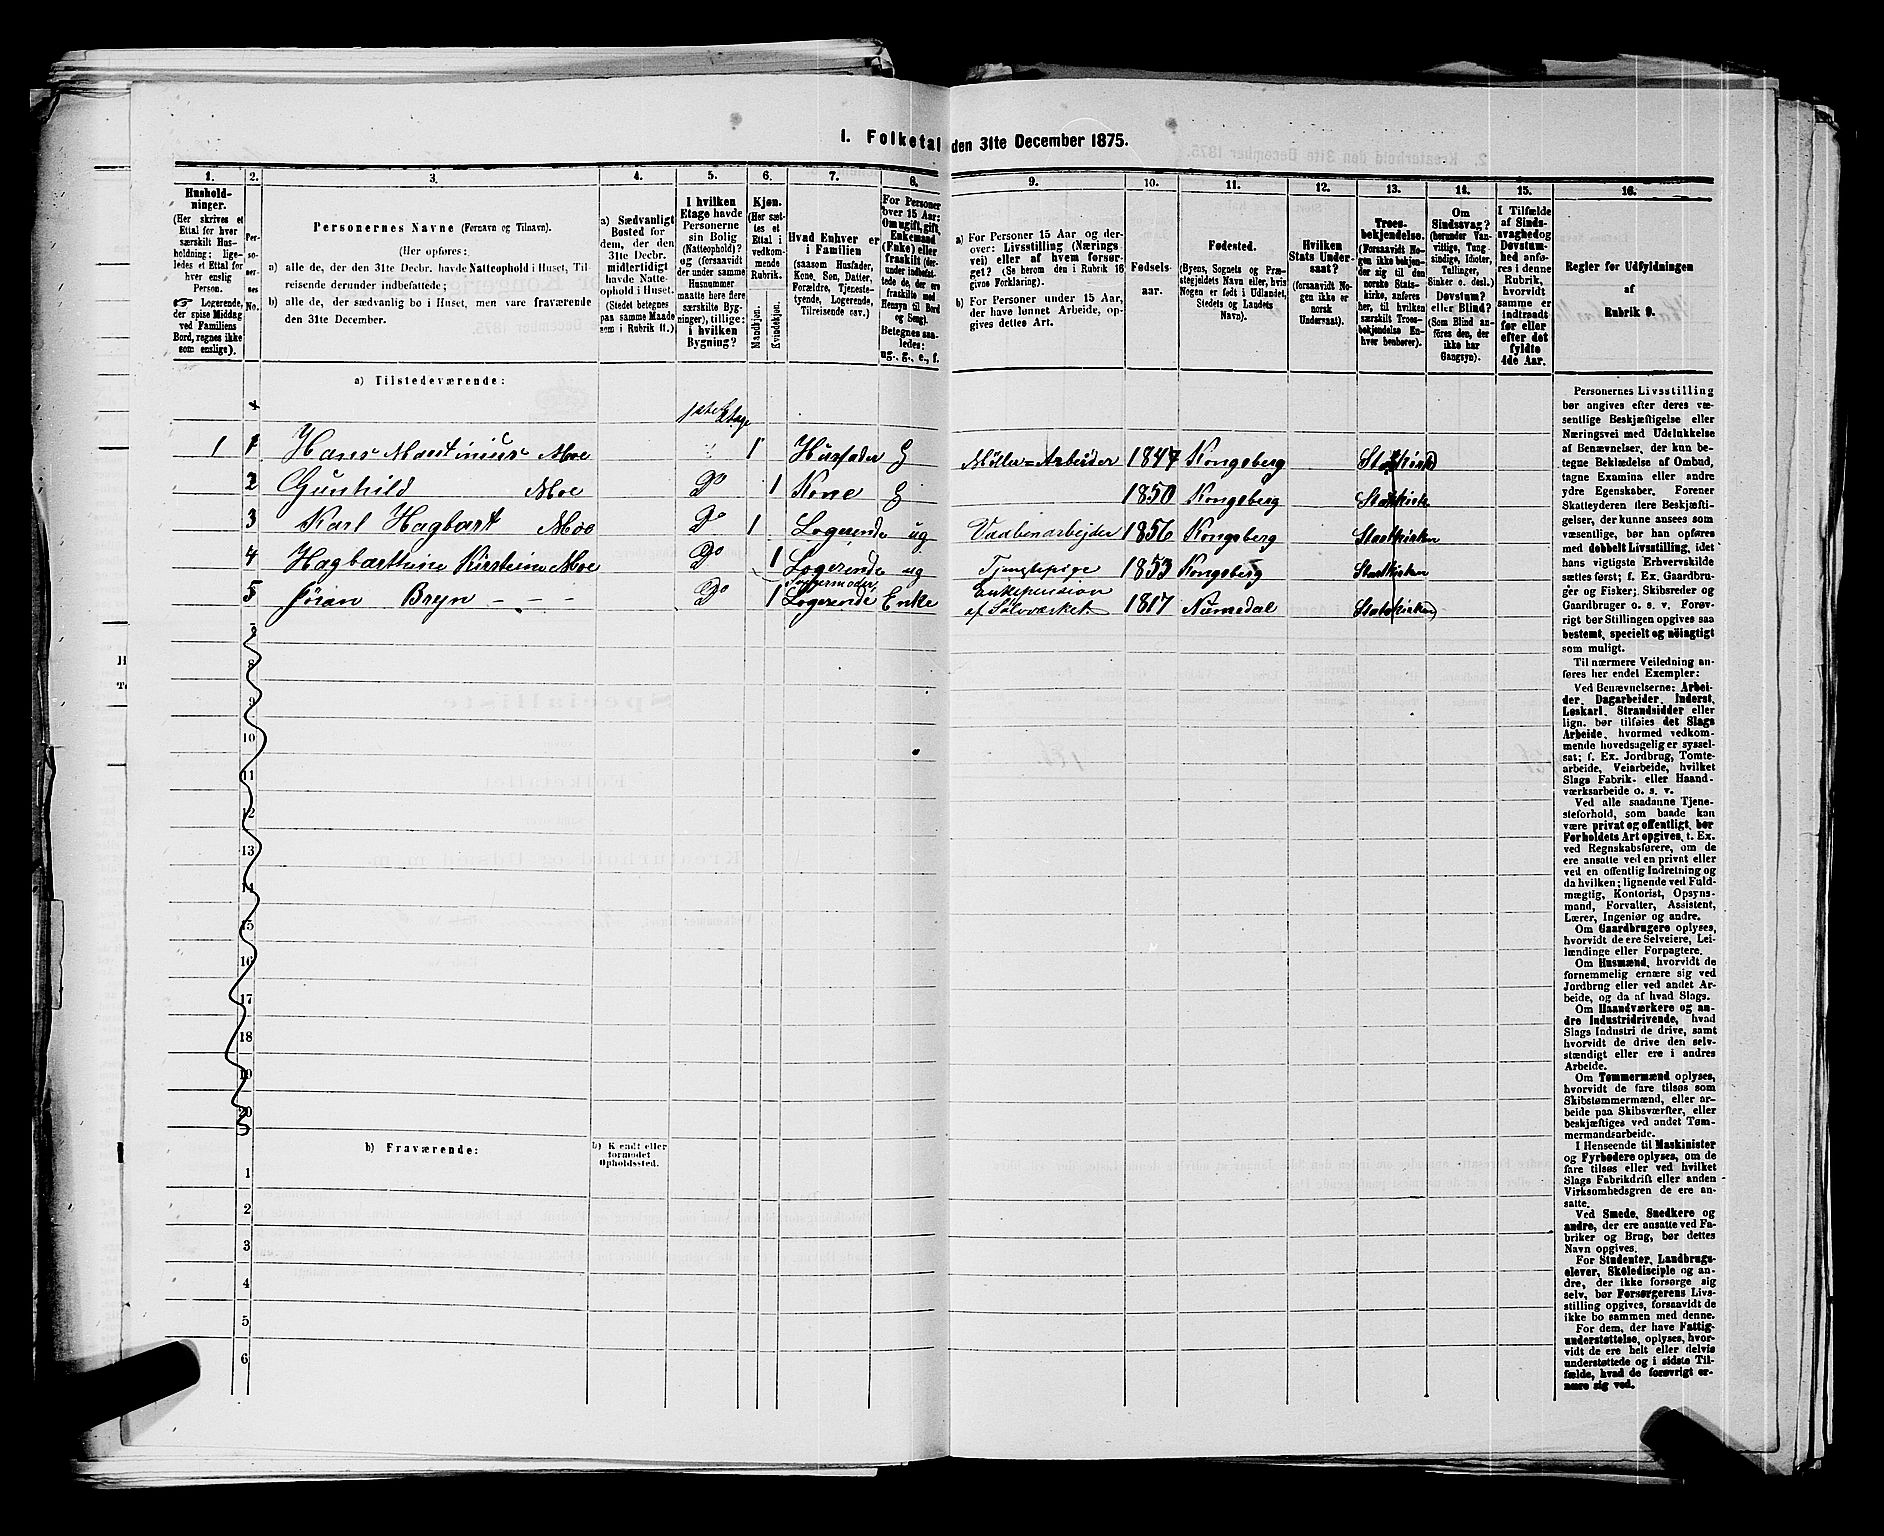 1. Folketal den 31te December 1875.
1. 2. 3. 4. 5. 6. 7. 8. 9. 10. 11. 12. 13. 14. 15. 16.
Hushold-
ninger.
(Her skrives et
Ettal for hver
særskilt Hus-
holdning; lige-
ledes et Ettal for
hver enslig
Person.
☞ Logerende,
der spise Middag
ved Familiens
Bord, regnes ikke
som enslige).
Per-
so-
ner-
nes
No.
Personernes Navne (Fornavn og Tilnavn).
(Her opføres:
a) alle de, der den 31te Decbr. havde Natteophold i Huset, Til-
reisende derunder indbefattede;
b) alle de, der sædvanlig bo i Huset, men vare fraværende
den 31te December.
a) Sædvanligt
Bosted for
dem, der den
31te Decbr.
midlertidigt
havde Natte-
ophold i Huset.
(Stedet betegnes
paa samme Maade
som i Rubrik 11.)
I hvilken
Etage havde
Personerne
sin Bolig
(Natteophold)?
og (forsaavidt
der under samme
Husnummer
maatte høre flere
særskilte Byg-
ninger), tillige:
i hvilken
Bygning?
Kjøn.
(Her sæt-
tes et
Ettal i
vedkom-
mende
Rubrik.
Mandkjøn.
Kvindekjøn.
Hvad Enhver er
i Familien
(saasom Husfader,
Kone, Søn, Datter,
Forældre, Tjeneste-
tyende, Logerende,
Tilreisende osv.)
For Personer
over 15 Aar:
Om ugift, gift,
Enkemand
(Enke) eller
fraskilt (der-
under indbefat-
tede de, der ere
fraskilte med
Hensyn til Bord
og Seng).
Betegnes saa-
ledes:
ug., g., e., f.
a) For Personer 15 Aar og der-
over: Livsstilling (Nærings-
vei) eller af hvem forsør-
get? (Se herom den i Rubrik 16
givne Forklaring).
b) For Personer under 15 Aar,
der have lønnet Arbeide, op-
gives dettes Art.
Fødsels-
aar.
Fødested.
(Byens, Sognets og Præ-
stegjeldets Navn eller, hvis
Nogen er født i Udlandet,
Stedets og Landets
Navn).
Hvilken
Stats Under-
saat?
(forsaavidt No-
gen ikke er
norsk
Undersaat).
Troes-
bekjendelse.
(Forsaavidt No-
gen ikke bekjen-
der sig til den
norske Stats-
kirke, anføres
her, til hvilken
særskilt Troes-
bekjendelse En-
hver henhører).
Om
Sindssvag?
(herunder Van-
vittige, Tung-
sindige, Idioter,
Tullinger,
Sinker o. desl.)
Døvstum?
eller Blind?
(Som Blind an-
føres den, der
ikke har
Gangsyn).
I Tilfælde
af Sinds-
svaghed og
Døvstum-
hed anfø-
res i denne
Rubrik,
hvorvidt
samme er
indtraadt
før eller
efter det
fyldte
4de Aar.
Regler for Udfyldningen
af
Rubrik 9.
a) Tilstedeværende:
1ste Etage
1 1 Hans Martinius Moe 1 Husfader G Mølle-Arbeider 1847 Kongsberg Statskirk
2 Gunhild Moe Do 1 Kone G 1850 Kongsberg Statskirke
3 Karl Hagbart Moe Do 1 Logerende ug Vaabenarbejder 1856 Kongsberg Statskirken
4 Hagbarthine Kirstine Moe Do 1 Logerende ug Tjenstepige 1853 Kongsberg Statskirken
5 Jöran Bryn - - - Do 1 Logerende Enke Enkepension
af Sølvværket 1817 Numedal Statskirken
8
9
10
11
12
13
14
15
16
17
18
19
20
b) Fraværende:
b) Kjendt eller
formodet
Opholdssted.
1
2
3
4
5
6
Personernes Livsstilling
bør angives efter deres væ-
sentlige Beskjæftigelse eller
Næringsvei med Udelukkelse
af Benævnelser, der kun be-
tegne Beklædelse af Ombud,
tagne Examina eller andre
ydre Egenskaber. Forener
Skatteyderen flere Beskjæfti-
gelser, der kunne ansees som
væsentlige, bør han opføres
med dobbelt Livsstilling, idet
hans vigtigste Erhvervskilde
sættes først; f. Ex. Gaardbru-
ger og Fisker; Skibsreder og
Gaardbruger o. s. v. Forøv-
rigt bør Stillingen opgives saa
bestemt, specielt og nöiagtigt
som muligt.
Til nærmere Veiledning an-
føres her endel Exempler:
Ved Benævnelserne: Arbei-
der, Dagarbeider, Inderst,
Løskarl, Strandsidder eller
lign. bør tilføies det Slags
Arbeide, hvormed vedkom-
mende hovedsagelig er syssel-
sat; f. Ex. Jordbrug, Tomte-
arbeide, Veiarbeide, hvilket
Slags Fabrik- eller Haand-
værksarbeide o. s. v.
Ved alle saadanne Tjene-
steforhold, som baade kan
være privat og offentligt, bør
Forholdets Art opgives, t. Ex.
ved Regnskabsførere, om de
ere ansatte ved en privat eller
ved en offentlig Indretning og
da hvilken; lignende ved Fuld-
mægtig, Kontorist, Opsyns-
mand, Forvalter, Assistent,
Lærer, Ingeniør og andre.
Om Gaardbrugere oplyses,
hvorvidt de ere Selveiere, Lei-
lændinge eller Forpagtere.
Om Husmænd, hvorvidt de
fornemmelig ernære sig ved
Jordbrug eller ved andet Ar-
beide, og da af hvad Slags.
Om Haandværkere og an-
dre Industridrivende, hvad
Slags Industri de drive, samt
hvorvidt de drive den selv-
stændigt eller ere i andres
Arbeide.
Om Tømmermænd oplyses,
hvorvidt de fare tilsøs som
Skibstømmermænd, eller ar-
beide paa Skibsværfter, eller
beskjæftiges ved andet Tøm-
mermandsarbeide.
I Henseende til Maskinister
og Fyrbødere oplyses, om de
fare tilsøs eller ved hvilket
Slags Fabrikdrift eller anden
Virksomhedsgren de ere an-
satte.
Ved Smede, Snedkere og
andre, der ere ansatte ved Fa-
briker og Brug, bør dettes
Navn opgives.
For Studenter, Landbrugs-
elever, Skoledisciple og an-
dre, der ikke forsørge sig
selv, bør Forsørgerens Livs-
stilling opgives, forsaavidt de
ikke bo sammen med denne.
For dem, der have Fattig-
understøttelse, oplyses, hvor-
vidt de ere helt eller delvis
understøttede og i sidste Til-
fælde, hvad de forøvrigt er-
nære sig ved.